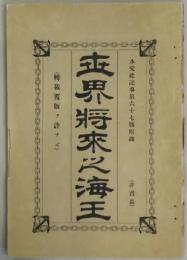 水交社記事第六十七號附錄
(非賣品)
世界將來之海王
(轉載飜刻ヲ許サズ)